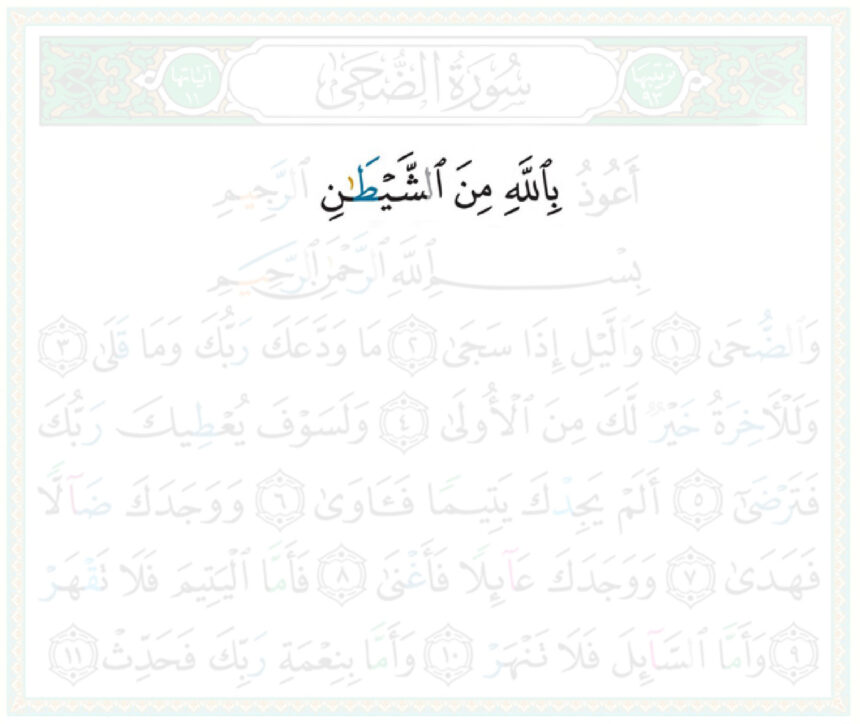 ترتيبها ٩٣ سُورَةُ الضُّحَىٰ آياتها ١١
أَعُوذُ بِٱللَّهِ مِنَ ٱلشَّيْطَٰنِ ٱلرَّجِيمِ
بِسْمِ ٱللَّهِ ٱلرَّحْمَٰنِ ٱلرَّحِيمِ
وَٱلضُّحَىٰ ١ وَٱلَّيْلِ إِذَا سَجَىٰ ٢ مَا وَدَّعَكَ رَبُّكَ وَمَا قَلَىٰ ٣
وَلَلْأَخِرَةُ خَيْرٌ لَّكَ مِنَ ٱلْأُولَىٰ ٤ وَلَسَوْفَ يُعْطِيكَ رَبُّكَ
فَتَرْضَىٰٓ ٥ أَلَمْ يَجِدْكَ يَتِيمًا فَـَٔاوَىٰ ٦ وَوَجَدَكَ ضَآلًّا
فَهَدَىٰ ٧ وَوَجَدَكَ عَآئِلًا فَأَغْنَىٰ ٨ فَأَمَّا ٱلْيَتِيمَ فَلَا تَقْهَرْ
٩ وَأَمَّا ٱلسَّآئِلَ فَلَا تَنْهَرْ ١٠ وَأَمَّا بِنِعْمَةِ رَبِّكَ فَحَدِّثْ ١١